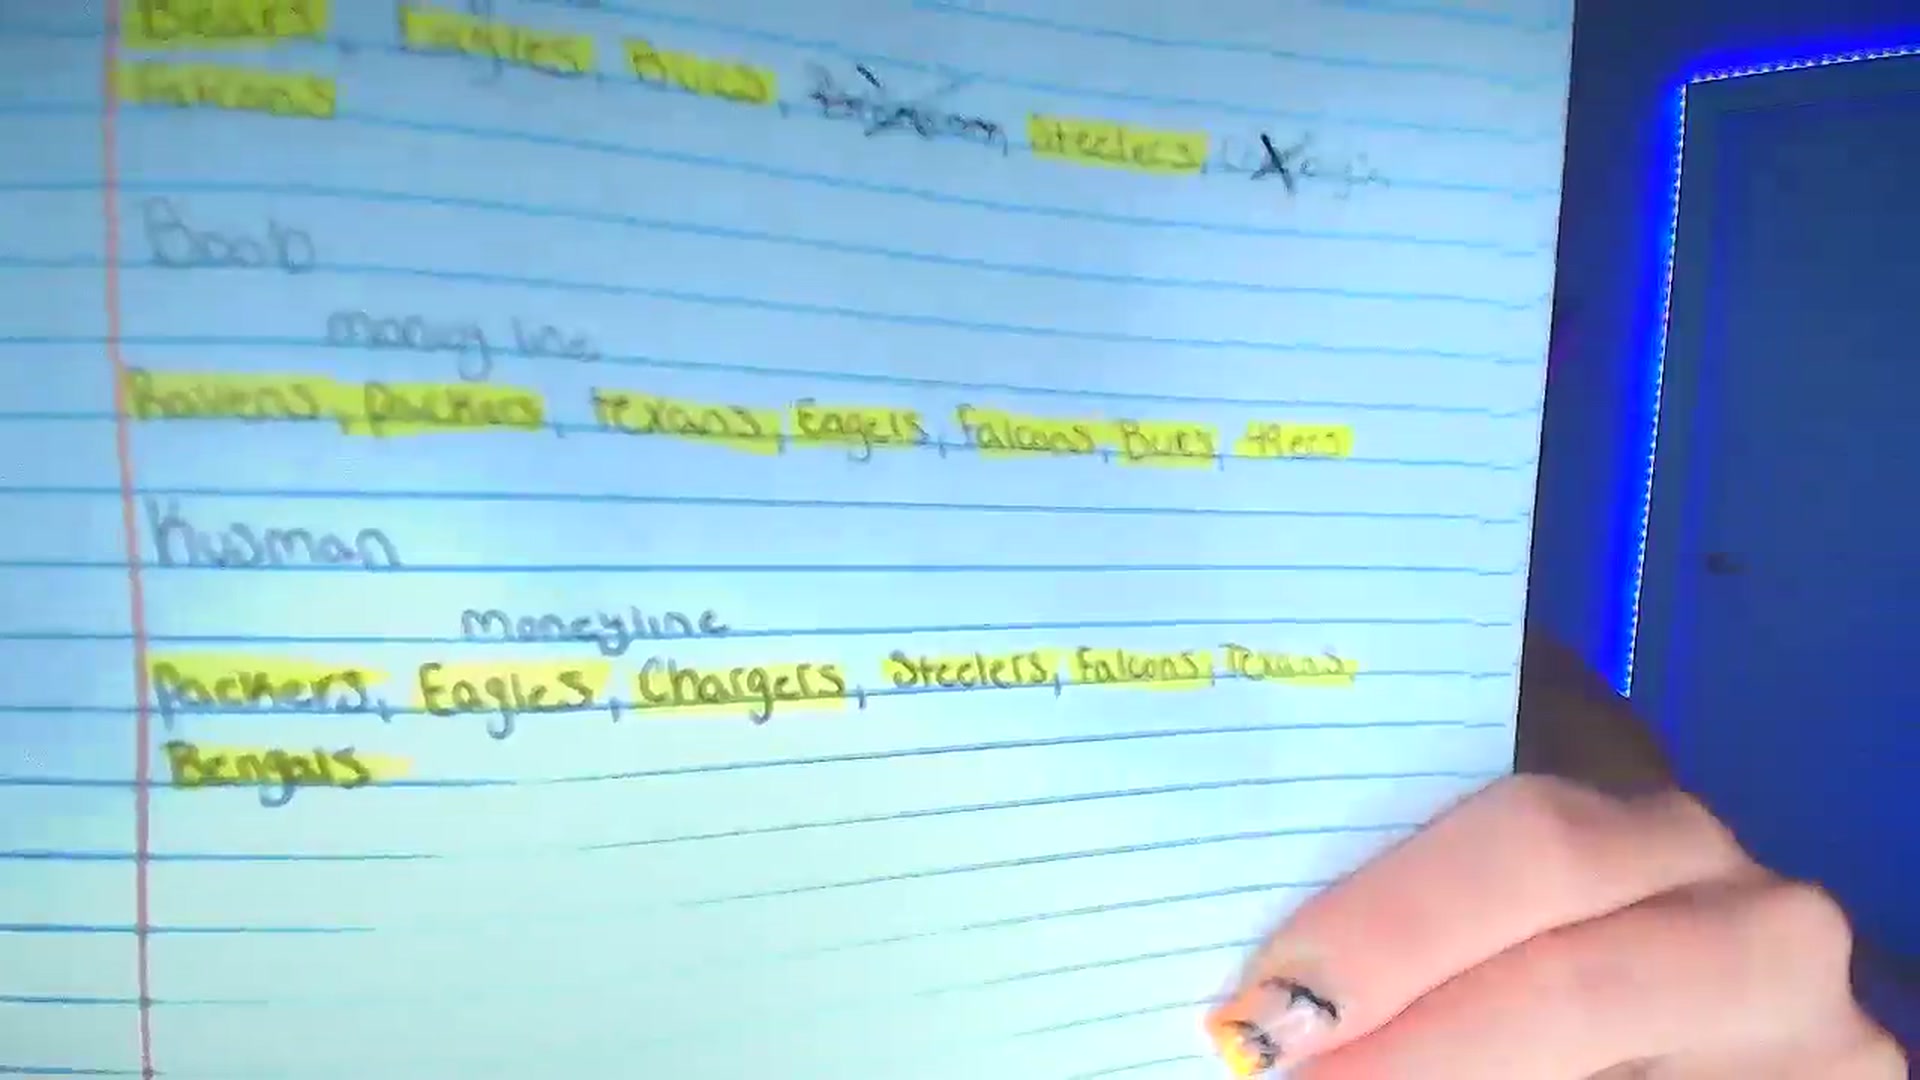 Bears, Eagles, Bucs, Steelers,
Falcons
Boob
money line
Ravens, packers, texans, Eagels, falcons, Bucs, 49ers
Kusman
moneyline
Packers, Eagles, Chargers, Steelers, Falcons, Texans,
Bengals